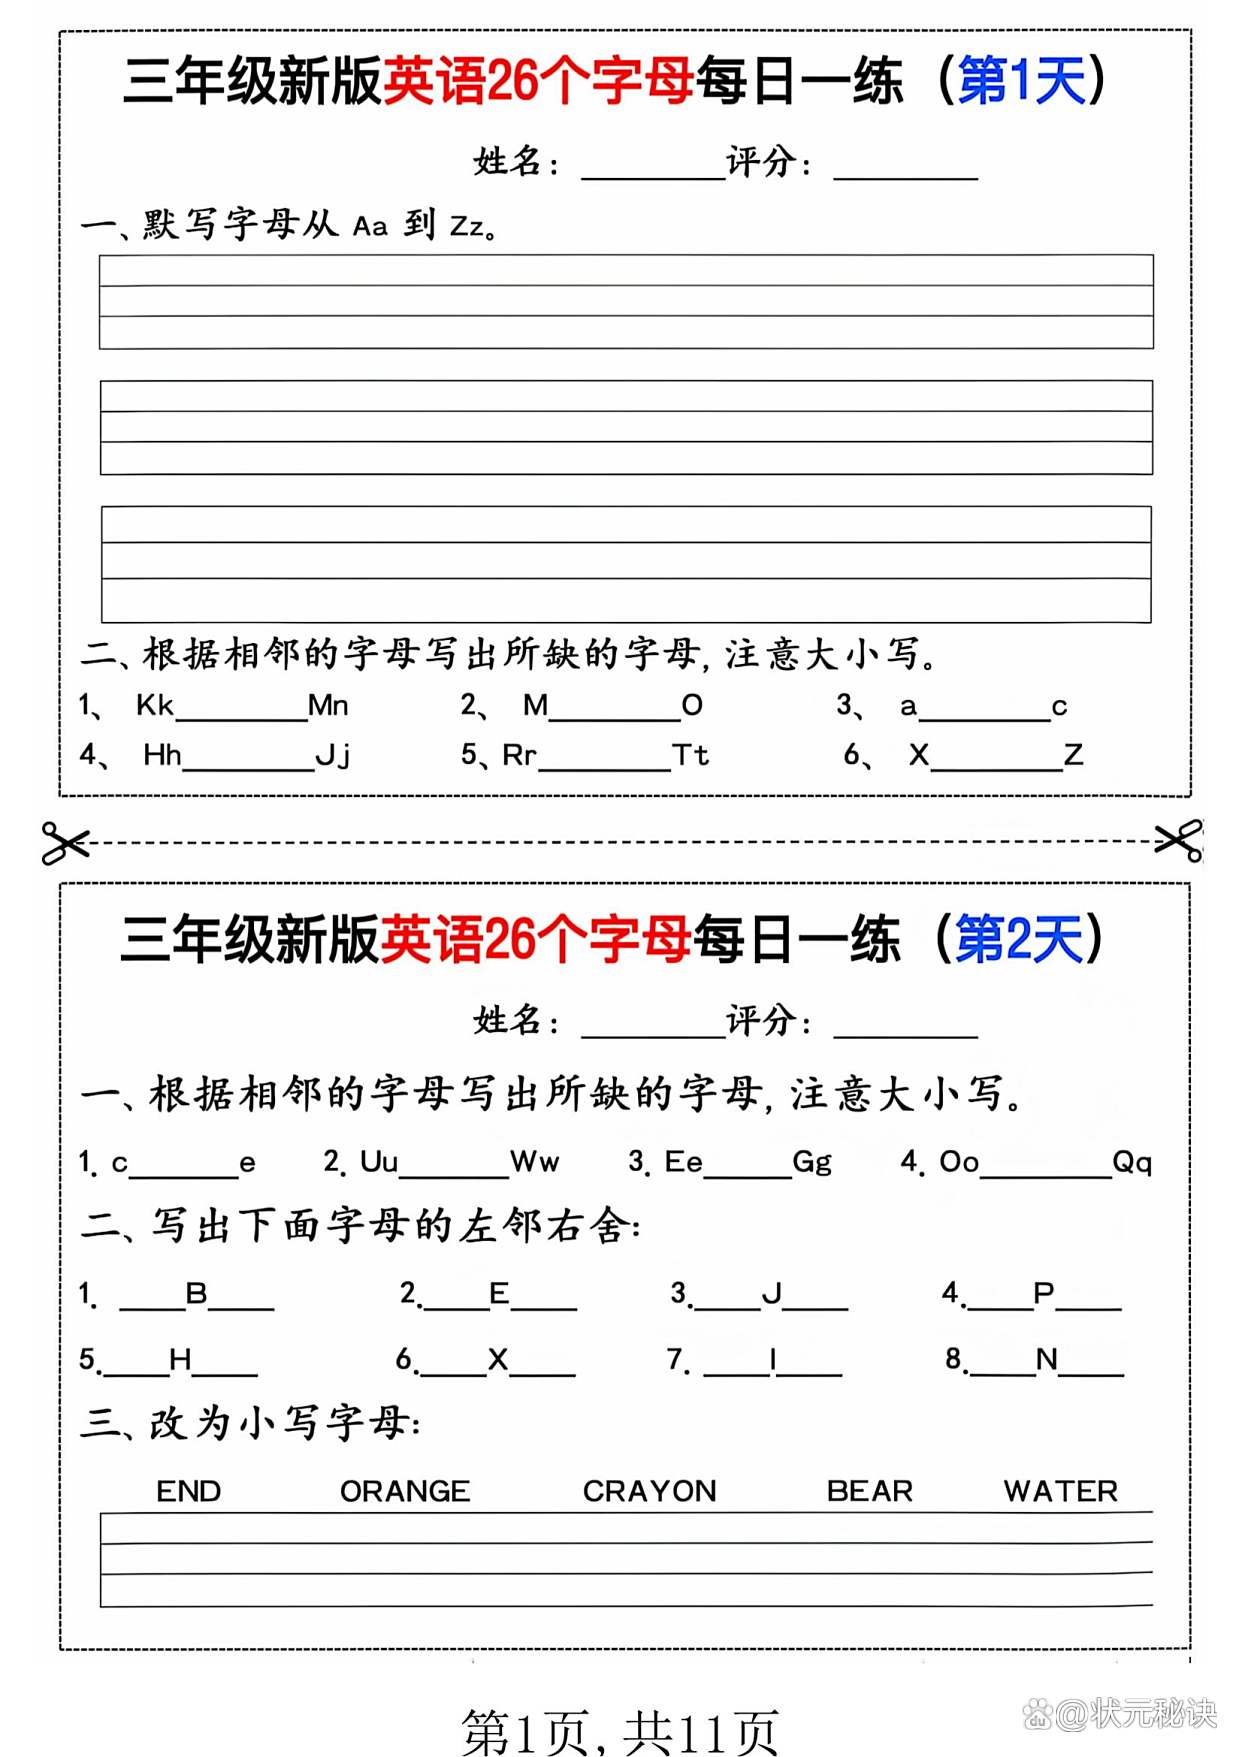 三年级新版英语26个字母每日一练（第1天）
姓名：________评分：________
一、默写字母从 Aa 到 Zz。
二、根据相邻的字母写出所缺的字母, 注意大小写。
1、 Kk________Mn 2、 M________O 3、 a________c
4、 Hh________Jj 5、Rr________Tt 6、 X________Z
三年级新版英语26个字母每日一练（第2天）
姓名：________评分：________
一、根据相邻的字母写出所缺的字母, 注意大小写。
1. c______e 2. Uu______Ww 3. Ee_____Gg 4. Oo_______Qq
二、写出下面字母的左邻右舍:
1. ____B____ 2.____E____ 3.____J____ 4.____P____
5.____H____ 6.____X____ 7. ____I____ 8.____N____
三、改为小写字母:
END ORANGE CRAYON BEAR WATER
第1页, 共11页
du @状元秘诀